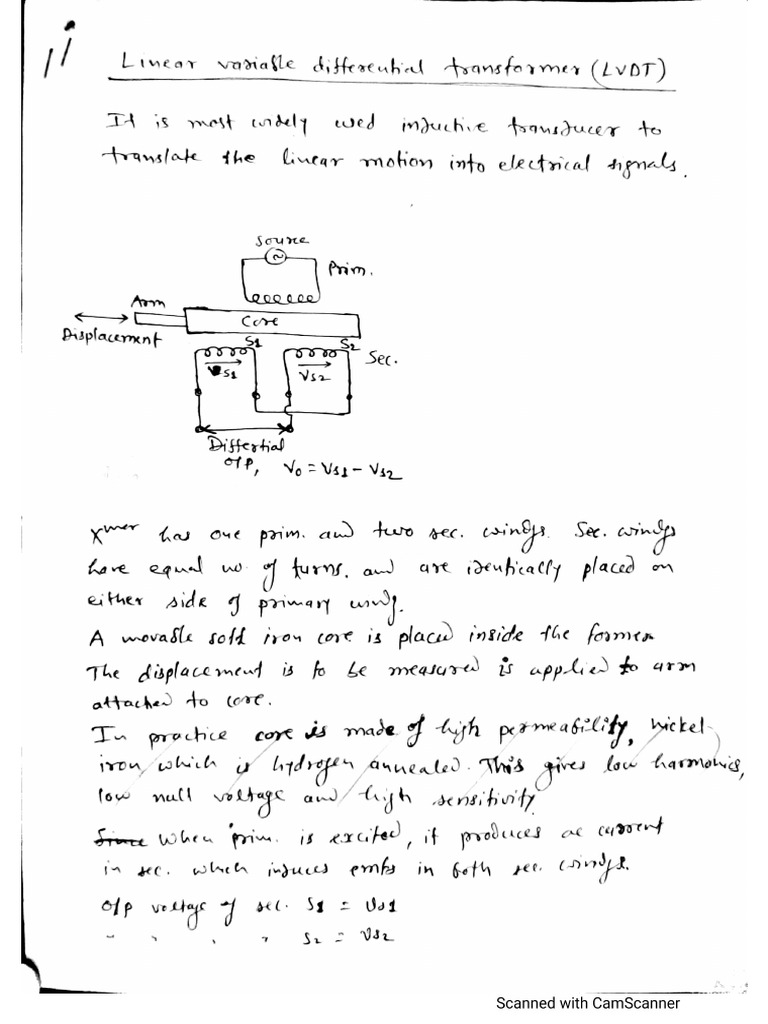 11
Linear variable differential transformer (LVDT)
It is most widely used inductive transducer to
translate the linear motion into electrical signals.
Source
Prim.
Arm
Core
Displacement
S1
S2
Sec.
VS1
VS2
Differtial
O/P, Vo = VS1 - VS2
Xmer has one prim. and two sec. windgs. Sec. windgs
have equal no. of turns. and are identically placed on
either side of primary wndg.
A movable soft iron core is placed inside the former
The displacement is to be measured is applied to arm
attached to core.
In practice core is made of high permeability, nickel-
iron which is hydrogen annealed. This gives low harmonics,
low null voltage and high sensitivity
Since When prim. is excited, it produces ac current
in sec. which induces emfs in both sec. windgs.
O/p voltage of sec. S1 = VS1
" " " " S2 = VS2
Scanned with CamScanner